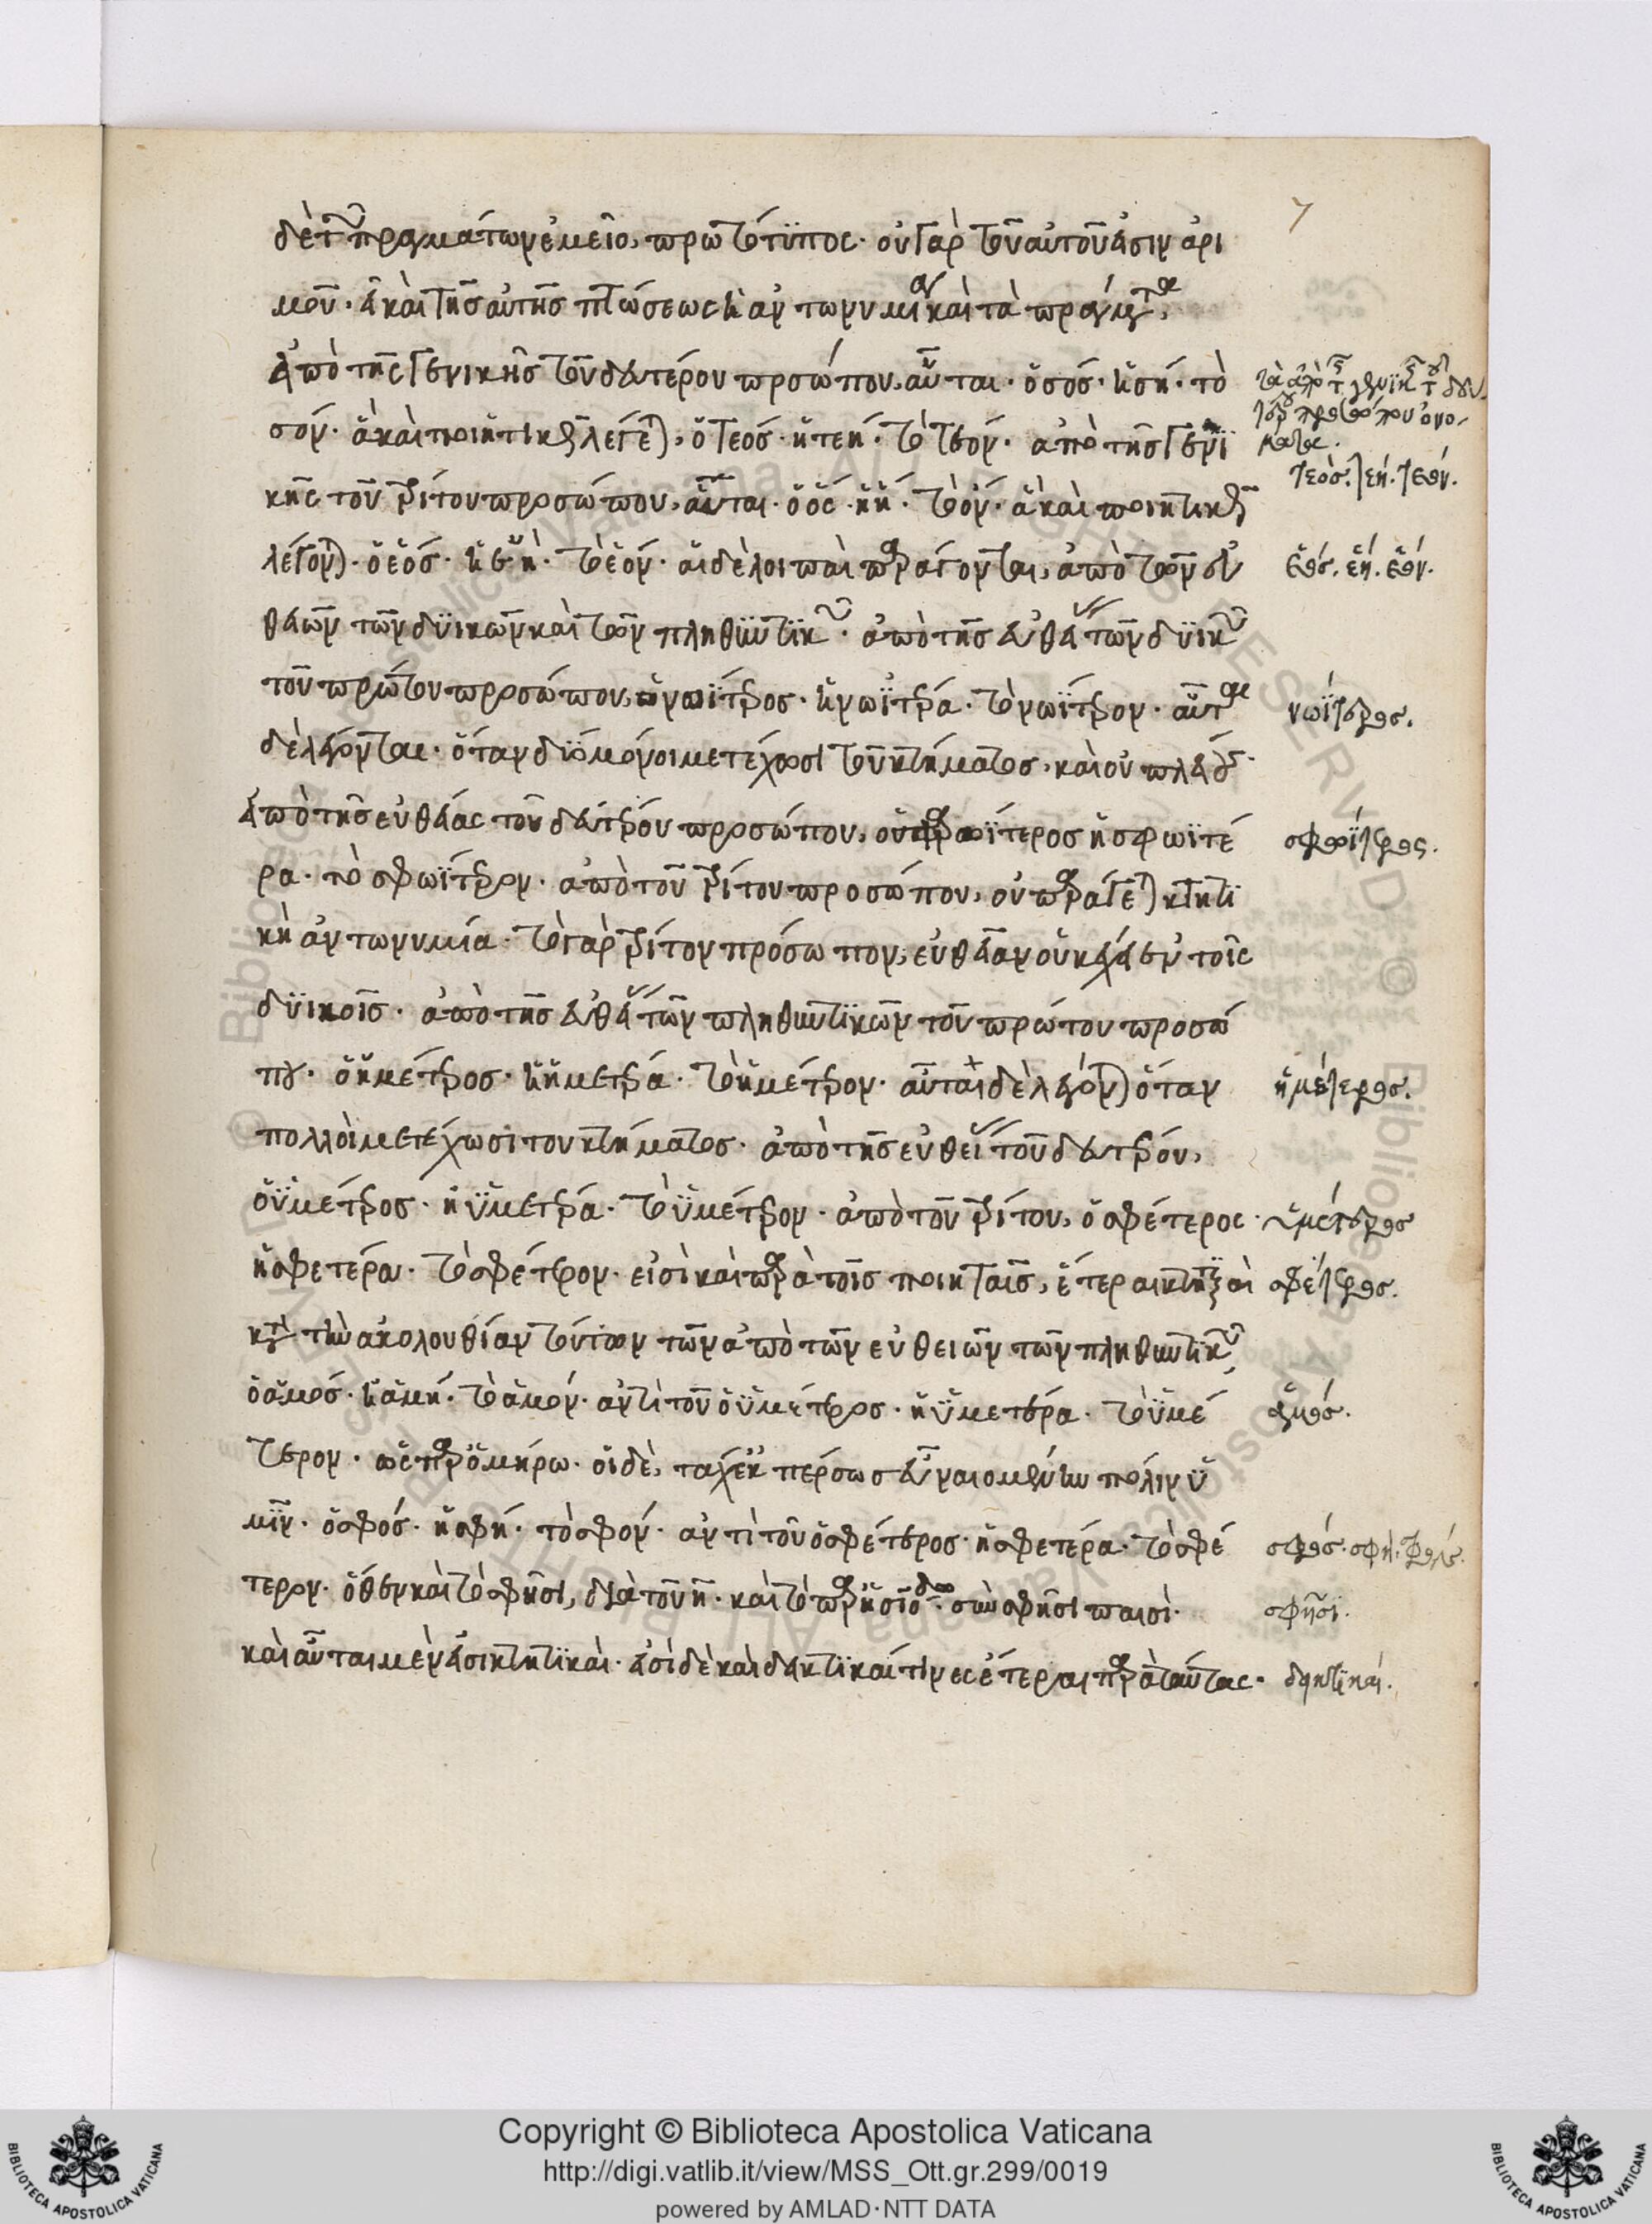 7
δὲ τῶν πραγμάτων ἐμεῖο, πρωτότυπος· οὐ γὰρ τοῦ αὐτοῦ εἰσιν ἀρι
μοῦ· ἢ καὶ τῆς αὐτῆς πτώσεως ἡ ἀντωνυμία καὶ τὰ πράγματα,
ἀπὸ τῆς γενικῆς τοῦ δευτέρου προσώπου, αὗται· ὁ σός· ἡ σή· τὸ
σόν· ἃ καὶ ποιητικῶς λέγεται, ὁ τεός· ἡ τεή· τὸ τεόν· ἀπὸ τῆς γενι
κῆς τοῦ τρίτου προσώπου, αὗται· ὁ ὅς· ἡ ἥ· τὸ ὅν· ἃ καὶ ποιητικῶς
λέγονται· ὁ ἑός· ἡ ἑὴ· τὸ ἑόν· αἱ δὲ λοιπαὶ παράγονται, ἀπὸ τῶν εὐ
θειῶν τῶν δυϊκῶν καὶ τῶν πληθυντικῶν· ἀπὸ τῆς εὐθείας τῶν δυϊκῶν
τοῦ πρώτου προσώπου, ὁ νωΐτερος· ἡ νωϊτέρα· τὸ νωΐτερον· αὗται
δὲ λέγονται· ὅταν δύο μόνοι μετέχωσι τοῦ κτήματος, καὶ οὐ πλείους·
ἀπὸ τῆς εὐθείας τοῦ δευτέρου προσώπου, ὁ σφωΐτερος ἡ σφωϊτέ
ρα· τὸ σφωΐτερον· ἀπὸ τοῦ τρίτου προσώπου, οὐ παράγεται κτητι
κὴ ἀντωνυμία· τὸ γὰρ τρίτον πρόσωπον, εὐθεῖαν οὐκ ἔχει ἐν τοῖς
δυϊκοῖς· ἀπὸ τῆς εὐθείας τῶν πληθυντικῶν τοῦ πρώτου προσώ
που· ὁ ἡμέτερος· ἡ ἡμετέρα· τὸ ἡμέτερον· αὗται δὲ λέγονται ὅταν
πολλοὶ μετέχωσι τοῦ κτήματος· ἀπὸ τῆς εὐθείας τοῦ δευτέρου,
ὁ ὑμέτερος· ἡ ὑμετέρα· τὸ ὑμέτερον· ἀπὸ τοῦ τρίτου, ὁ σφέτερος·
ἡ σφετέρα· τὸ σφέτερον· εἰσὶ καὶ παρὰ τοῖς ποιηταῖς, ἕτεραι κτητικαὶ
κατὰ τὴν ἀκολουθίαν τούτων τῶν ἀπὸ τῶν εὐθειῶν τῶν πληθυντικῶν,
ὁ ἁμός· ἡ ἁμή· τὸ ἁμόν· ἀντὶ τοῦ ὁ ὑμέτερος· ἡ ὑμετέρα· τὸ ὑμέ
τερον· ὡς παρ' ὁμήρω· οἱ δὲ, τάχ' ἐκπέρσωσ εὖ ναιομένην πόλιν ὑ
μῖν· ὁ σφός· ἡ σφή· τὸ σφόν· ἀντὶ τοῦ ὁ σφέτερος· ἡ σφετέρα· τὸ σφέ
τερον· ὅθεν καὶ τὸ σφῆσι, διὰ τοῦ η· καὶ τὸ παρ' ἡσιόδω· σὺν σφῆσι παισὶ·
καὶ αὗται μὲν εἰσι κτητικαὶ· εἰσὶ δὲ καὶ δεικτικαί τινες ἕτεραι παρὰ ταύτας·
τὰ ἀπὸ τῆς γενικῆς τοῦ δευ
τέρου προσώπου ὀνό
ματα.
τεός. τεή. τεόν.
ἑός. ἑή. ἑόν.
νωΐτερος.
σφωΐτερος.
ἡμέτερος.
ὑμέτερος
σφέτερος.
ἁμός.
σφός. σφή.
σφῆσι.
δεικτικαί.
Copyright © Biblioteca Apostolica Vaticana
http://digi.vatlib.it/view/MSS_Ott.gr.299/0019
powered by AMLAD·NTT DATA